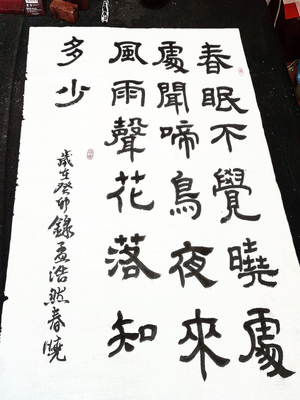 春眠不覺曉處
處聞啼鳥夜來
風雨聲花落知
多少
歲在癸卯錄孟浩然春曉